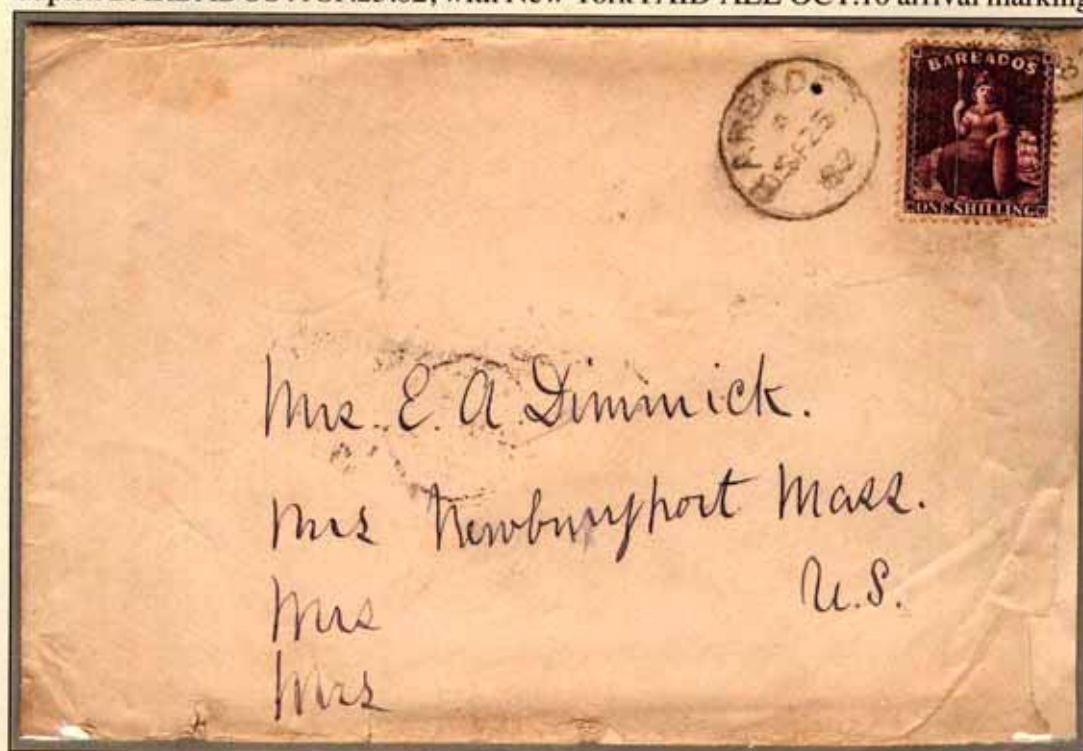 BARBADOS SP.25.82, with New York PAID ALL OCT.10 arrival marking
BARBADOS
A
SP 25
82
BARBADOS
ONE SHILLING
Mrs. E. A. Dimmick.
Mrs Newburyport Mass.
Mrs U.S.
Mrs